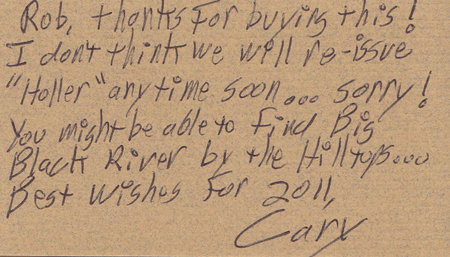 Rob, thanks for buying this!
I don't think we will re-issue
"Holler" anytime soon... sorry!
You might be able to find Big
Black River by the Hilltops...
Best wishes for 2011,
Cary